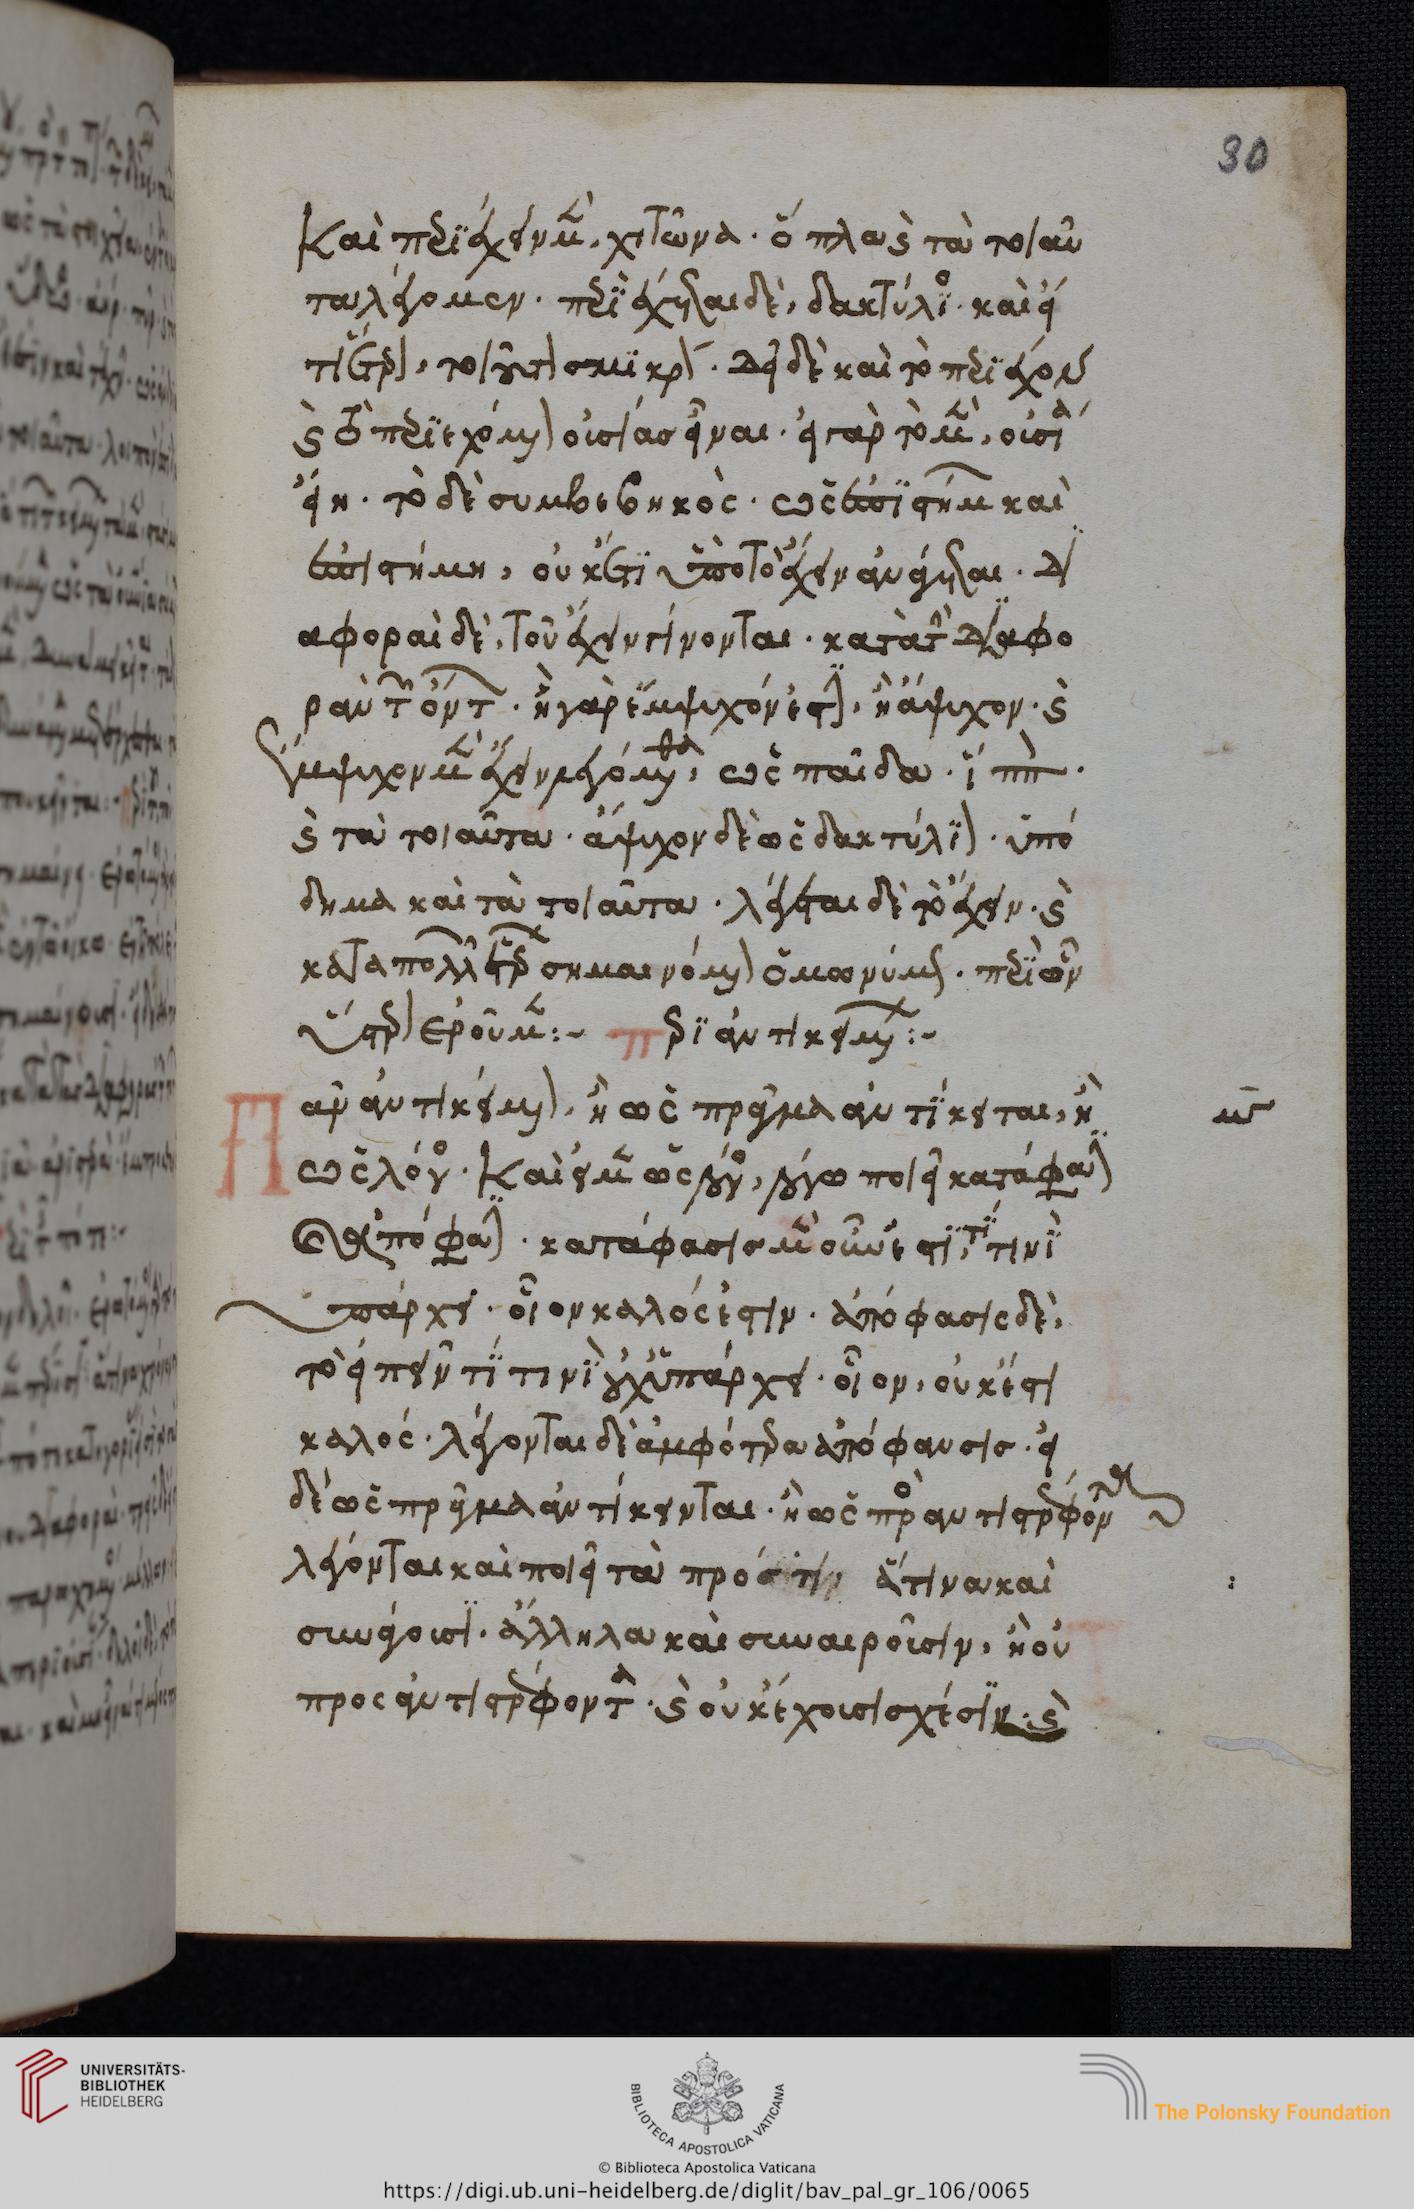 30
Καὶ περιέχειν μὲν, χιτῶνα. ὅπλα καὶ τὰ τοιαῦ
τα λέγομεν. περιέχεται δὲ, δακτύλιος. καὶ εἴ
τι ἕτερον, τοιοῦτον σμικρόν. δεῖ δὲ καὶ τὸ περιέχον
καὶ τὸ περιεχόμενον οὐσίας εἶναι. εἰ γὰρ τὸ μὲν, οὐσία
εἴη. τὸ δὲ συμβεβηκὸς. ὡς ἐπιστήμων καὶ
ἐπιστήμη, οὐκέτι ὑπὸ τὸ ἔχειν ἀνάγεται. δι
αφοραὶ δὲ, τοῦ ἔχειν γίνονται. κατὰ τὴν διαφο
ρὰν τῶν ὄντων. ἢ γὰρ ἔμψυχόν ἐστιν, ἢ ἄψυχον. καὶ
ἔμψυχον μὲν ἔχειν λεγόμεθα, ὡς παῖδα. ἵππον.
καὶ τὰ τοιαῦτα. ἄψυχον δὲ ὡς δακτύλιον. ὑπό
δημα καὶ τὰ τοιαῦτα. λέγεται δὲ τὸ ἔχειν. καὶ
κατὰ πολλῶν ἑτέρων σημαινόμενον ὁμωνύμως. περὶ ὧν
ὕστερον ἐροῦμεν:- περὶ ἀντικειμένων:-
Πᾶν ἀντικείμενον, ἢ ὡς πρᾶγμα ἀντίκειται, ἢ
ὡς λόγος. Καὶ εἰ μὲν ὡς λόγος, λόγῳ ποιεῖ κατάφασιν
καὶ ἀπόφασιν. κατάφασις μὲν οὖν ἐστι, τί τινὶ
ὑπάρχει. οἷον καλός ἐστιν. ἀπόφασις δὲ,
τὸ εἰπεῖν τί τινὶ οὐχ ὑπάρχει. οἷον, οὐκ ἔστι
καλός. λέγονται δὲ ἀμφότερα ἀπόφανσις. εἰ
δὲ ὡς πρᾶγμα ἀντίκεινται. ἢ ὡς πρὸς ἀντιστρέφοντα
λέγονται καὶ ποιεῖ τὰ πρός τι, ἅτινα καὶ
συνάγουσι. ἄλληλα καὶ συναιροῦσιν, ἢ οὐ
πρὸς ἀντιστρέφοντα. καὶ οὐκ ἔχουσι σχέσιν. καὶ
UNIVERSITÄTS-
BIBLIOTHEK
HEIDELBERG
BIBLIOTECA APOSTOLICA VATICANA
The Polonsky Foundation
© Biblioteca Apostolica Vaticana
https://digi.ub.uni-heidelberg.de/diglit/bav_pal_gr_106/0065